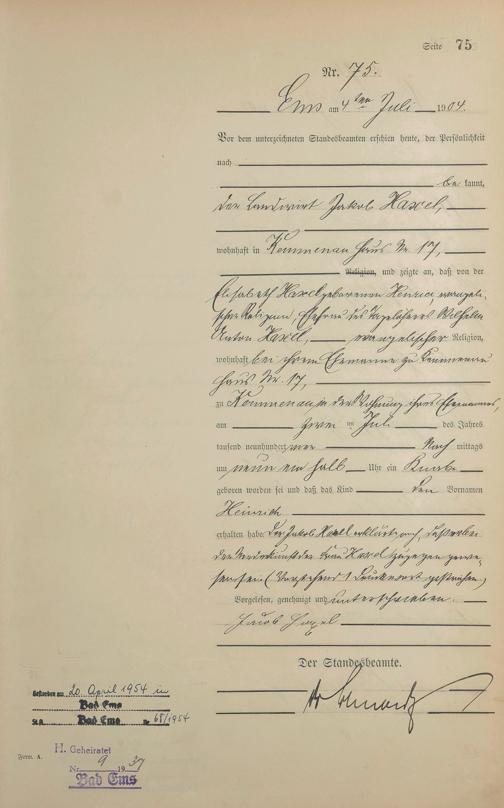 Seite 75
Nr. 75.
Ems am 4ten Juli 1904.
Vor dem unterzeichneten Standesbeamten erschien heute, der Persönlichkeit
nach
be kannt,
der Landwirt Jakob Haxel,
wohnhaft in Kemmenau Haus Nr 17,
Religion, und zeigte an, daß von der
Elisabeth Haxel geborenen Henrici evangeli-
scher Religion, Ehefrau des Wilhelm
Anton Haxel, evangelischer Religion,
wohnhaft bei ihrem Ehemanne zu Kemmenau
Haus Nr. 17,
zu Kemmenau, in der Wohnung ihres Ehemannes,
am zwei ten Juli des Jahres
tausend neunhundert vier Nach mittags
um neun ein halb Uhr ein Knabe
geboren worden sei und daß das Kind den Vornamen
Heinrich
erhalten habe. Der Jakob Haxel erklärte auch, daß er bei
der Niederkunft der Frau Haxel zugegen gewe-
sen sei. (Vorstehend 1 Druckwort gestrichen)
Vorgelesen, genehmigt und unterschrieben.
Jacob Haxel
Der Standesbeamte.
Gestorben am 20. April 1954 in
Bad Ems
St.A. Bad Ems Nr 68/1954
Form. A.
H. Geheiratet
Nr. 9 1937
Bad Ems